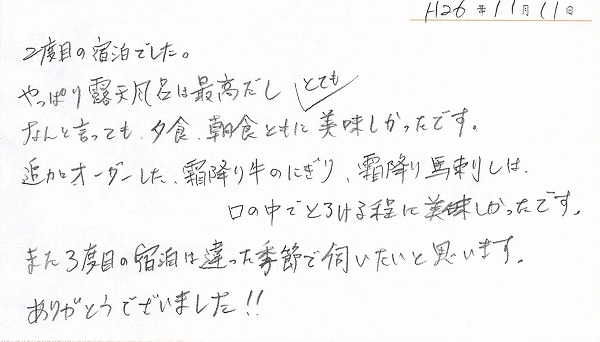 H26年11月11日
2度目の宿泊でした。
やっぱり露天風呂は最高だし
なんと言っても、夕食、朝食ともにとても美味しかったです。
追加オーダーした、霜降り牛のにぎり、霜降り馬刺しは、
口の中でとろける程に美味しかったです。
また3度目の宿泊は違った季節で伺いたいと思います。
ありがとうございました!!